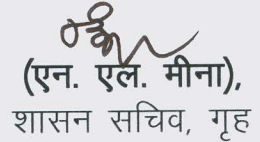 (एन. एल. मीना),
शासन सचिव, गृह